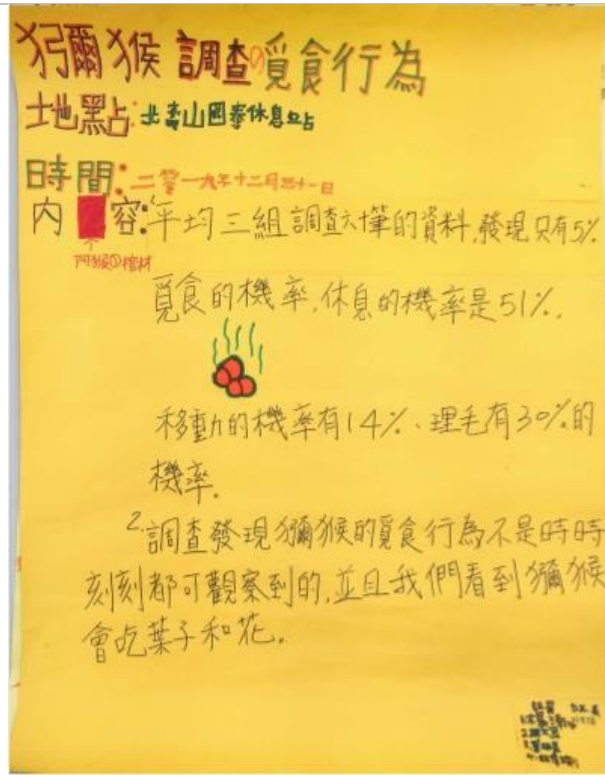 獼猴調查の覓食行為
地點:北壽山國泰休息站
時間:二零一九年十二月三十一日
內 容:平均三組調查六十筆的資料,發現只有5%
覓食的機率,休息的機率是51%,
移動的機率有14%、理毛有30%的
機率.
2.調查發現獼猴的覓食行為不是時時
刻刻都可觀察到的,並且我們看到獼猴
會吃葉子和花。